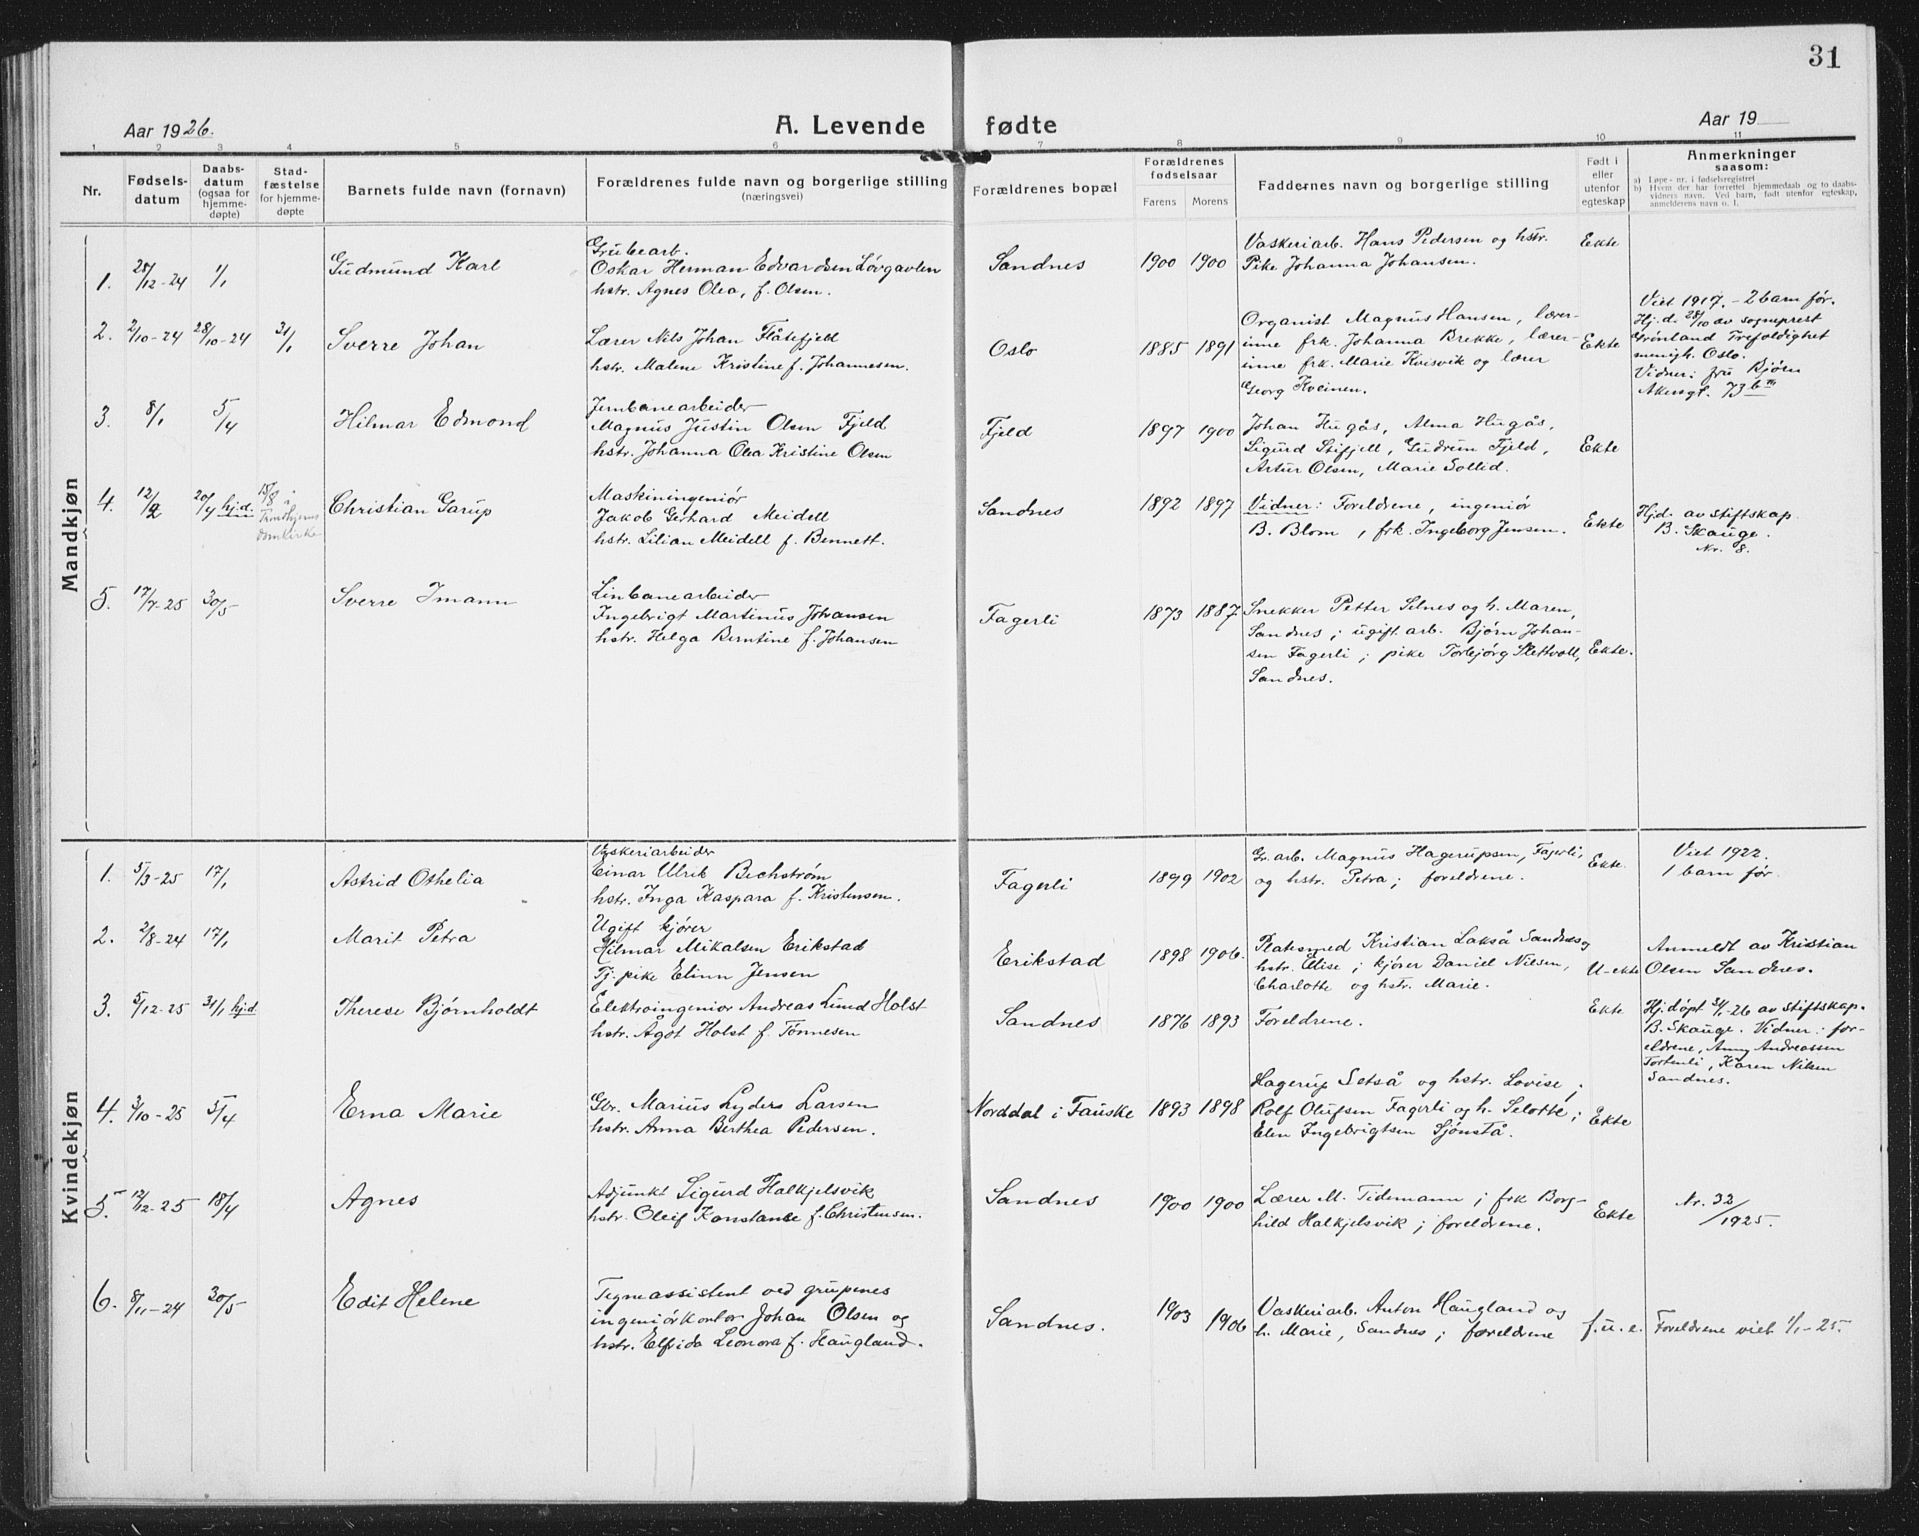 31
Aar 1926.
A. Levende fødte
Aar 19
1 2 3 4 5 6 7 8 9 10 11
Nr.
Fødselsdatum
Daabsdatum (ogsaa for hjemmedøpte)
Stadfæstelse for hjemmedøpte
Barnets fulde navn (fornavn)
Forældrenes fulde navn og borgerlige stilling
(næringsvei)
Forældrenes bopæl
Forældrenes fødselsaar
Farens Morens
Faddernes navn og borgerlige stilling
Født i eller utenfor egteskap
Anmerkninger
saasom:
a) Løpe-nr. i fødselsregistret
b) Hvem der har forrettet hjemmedaab og to daabsvidners navn. Ved barn, født utenfor egteskap, anmelderens navn o. l.
Mandkjøn
1. 25/12-24 1/1
Gudmund Karl
Grubearb.
Oskar Herman Edvardsen Løvgavlen
hstr. Agnes Olea, f. Olsen.
Sandnes 1900 1900
Vaskeriarb. Hans Pedersen og hstr.
Pike Johanna Johansen.
Ekte
2. 2/10-24 28/10-24 31/1
Sverre Johan
Lærer Nils Johan Flåtefjell
hstr. Malene Kristine f. Johannesen.
Oslo 1885 1891
Organist Magnus Hansen, lærer-
inne frk. Johanna Brekke, lærer-
inne frk. Marie Kvisvik og lærer
Georg Kveinen.
Ekte
Viet 1917. - 2 barn før.
Hj.d. 28/10 av sogneprest
Grønland Trefoldighet
menigh. Oslo.
Vidner: fru Bjørn
Akersgt. 73 b III
3. 8/1 5/4
Hilmar Edmond
Jernbanearbeider
Magnus Justin Olsen Fjeld
hstr. Johanna Olea Kristine Olsen
Fjeld 1897 1900
Johan Hugås, Alma Hugås,
Sigurd Stifjell, Gudrun Fjeld,
Artur Olsen, Marie Sollid.
Ekte
4. 12/2 20/4 hj.d. 15/8 i
Trondhjems
domkirke
Christian Garup
Maskiningeniør
Jakob Gerhard Meidell
hstr. Lilian Meidell f. Bennett.
Sandnes 1892 1897
Vidner: Foreldrene, ingeniør
B. Blom, frk. Ingeborg Jensen.
Ekte
Hjd. av stiftskap.
B. Skauge.
Nr. 8.
5. 17/7-25 30/5
Sverre Imann
Linbanearbeider
Ingebrigt Martinus Johansen
hstr. Helga Berntine f. Johansen
Fagerli 1873 1887
Snekker Petter Selnes og h. Maren,
Sandnes; ugift arb. Bjørn Johan-
sen Fagerli; pike Torbjørg Slettvoll,
Sandnes.
Ekte.
Kvindekjøn
1. 5/3-25 17/1
Astrid Othelia
Vaskeriarbeider
Einar Ulrik Bechstrøm
hstr. Inga Kaspara f. Kristensen.
Fagerli 1899 1902
Gr. arb. Magnus Hagerupsen, Fagerli,
og hstr. Petra; foreldrene.
Ekte.
Viet 1922.
1 barn før.
2. 2/8-24 17/1
Marit Petra
Ugift kjører
Hilmar Mikalsen Erikstad
Tj. pike Elinn Jensen
Erikstad 1898 1906.
Platesmed Kristian Lakså Sandnes og
hstr. Elise; kjører Daniel Nilsen,
Charlotte og hstr. Marie.
U-ekte
Anmeldt av Kristian
Olsen Sandnes.
3. 5/12-25 31/1 hj.d
Therese Bjørnholdt
Elektroingeniør Andreas Lund Holst
hstr. Ågot Holst f. Tønnesen
Sandnes 1876 1893
Foreldrene.
Ekte
Hj.døpt 31/1-26 av stiftskap.
B. Skauge. Vidner: for-
eldrene, Anny Andreassen
Tortenli, Karen Nilsen
Sandnes.
4. 3/10-25 5/4
Erna Marie
Gbr. Marius Lyders Larsen
hstr. Anna Berthea Pedersen.
Norddal i Fauske 1893 1898
Hagerup Setså og hstr. Lovise;
Rolf Olufsen Fagerli og h. Selotte;
Elen Ingebrigtsen Sjønstå.
Ekte
5. 12/12-25 18/4
Agnes
Adjunkt Sigurd Halkjelsvik
hstr. Oleif Konstanse f. Christensen.
Sandnes 1900 1900
Lærer M. Tidemann; frk Borg-
hild Halkjelsvik; foreldrene.
Ekte
Nr. 32/1925.
6. 8/11-24 30/5
Edit Helene
Tegneassistent ved grupenes
ingeniørkontor Johan Olsen og
hstr. Elfrida Leonora f. Haugland.
Sandnes. 1903 1906
Vaskeriarb. Anton Haugland og
h. Marie, Sandnes; foreldrene
f.u.e.
Foreldrene viet 1/1-25.